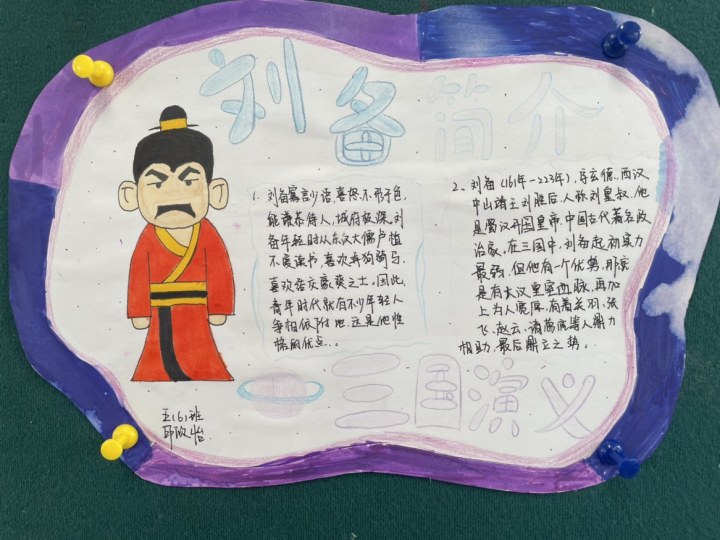 刘备简介
1、刘备寡言少语,喜怒不形于色,
能谦恭待人,城府极深。刘
备年轻时从东汉大儒卢植
不爱读书,喜欢弄狗骑马,
喜欢结庆豪葵之士。因此,
青年时代就有不少年轻人
争相依附他,这是他性
格的优点...
2、刘备(161年-223年),字玄德,西汉
中山靖王刘胜后,人称刘皇叔,他
是蜀汉开国皇帝,中国古代著名政
治家。在三国中,刘备起初实力
最强,但他有一个优势,那
是有大汉皇室血脉,再加
上为人宽厚,有着关羽、张
飞、赵云、诸葛亮等人鼎力
相助,最后鼎立之势。
三国演义
五(6)班
邱欣怡